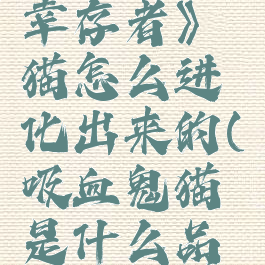 幸存者》
猫怎么进
化出来的(
吸血鬼猫
是什么品